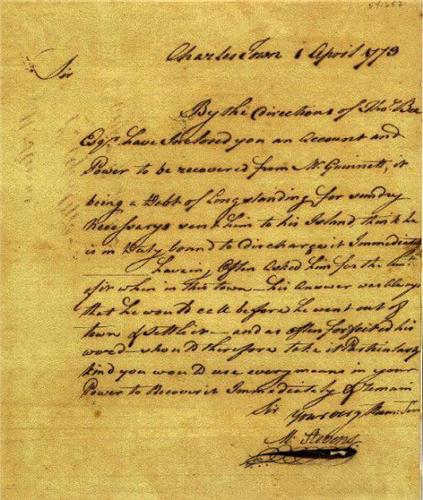 Charles Town 1 April 1773
Sir
By the Directions of Thos. Bee
Esqr. have Inclosed you an Account and
Power to be recovered from Mr. Guinnett, it
being a Debt of Longstanding for sundry
Necessarys sent him to his Island think he
is in Duty bound to Discharge it Immediately
having Often Asked him for the
of it when in this town — his Answer was always
that he would call before he went out of
town & settle it — and as often forfeited his
word — should therefore take it Particularly
kind you would use every means in your
Power to Recover it Immediately & remain
Sir
Your very Hum. Ser
M. Stevens